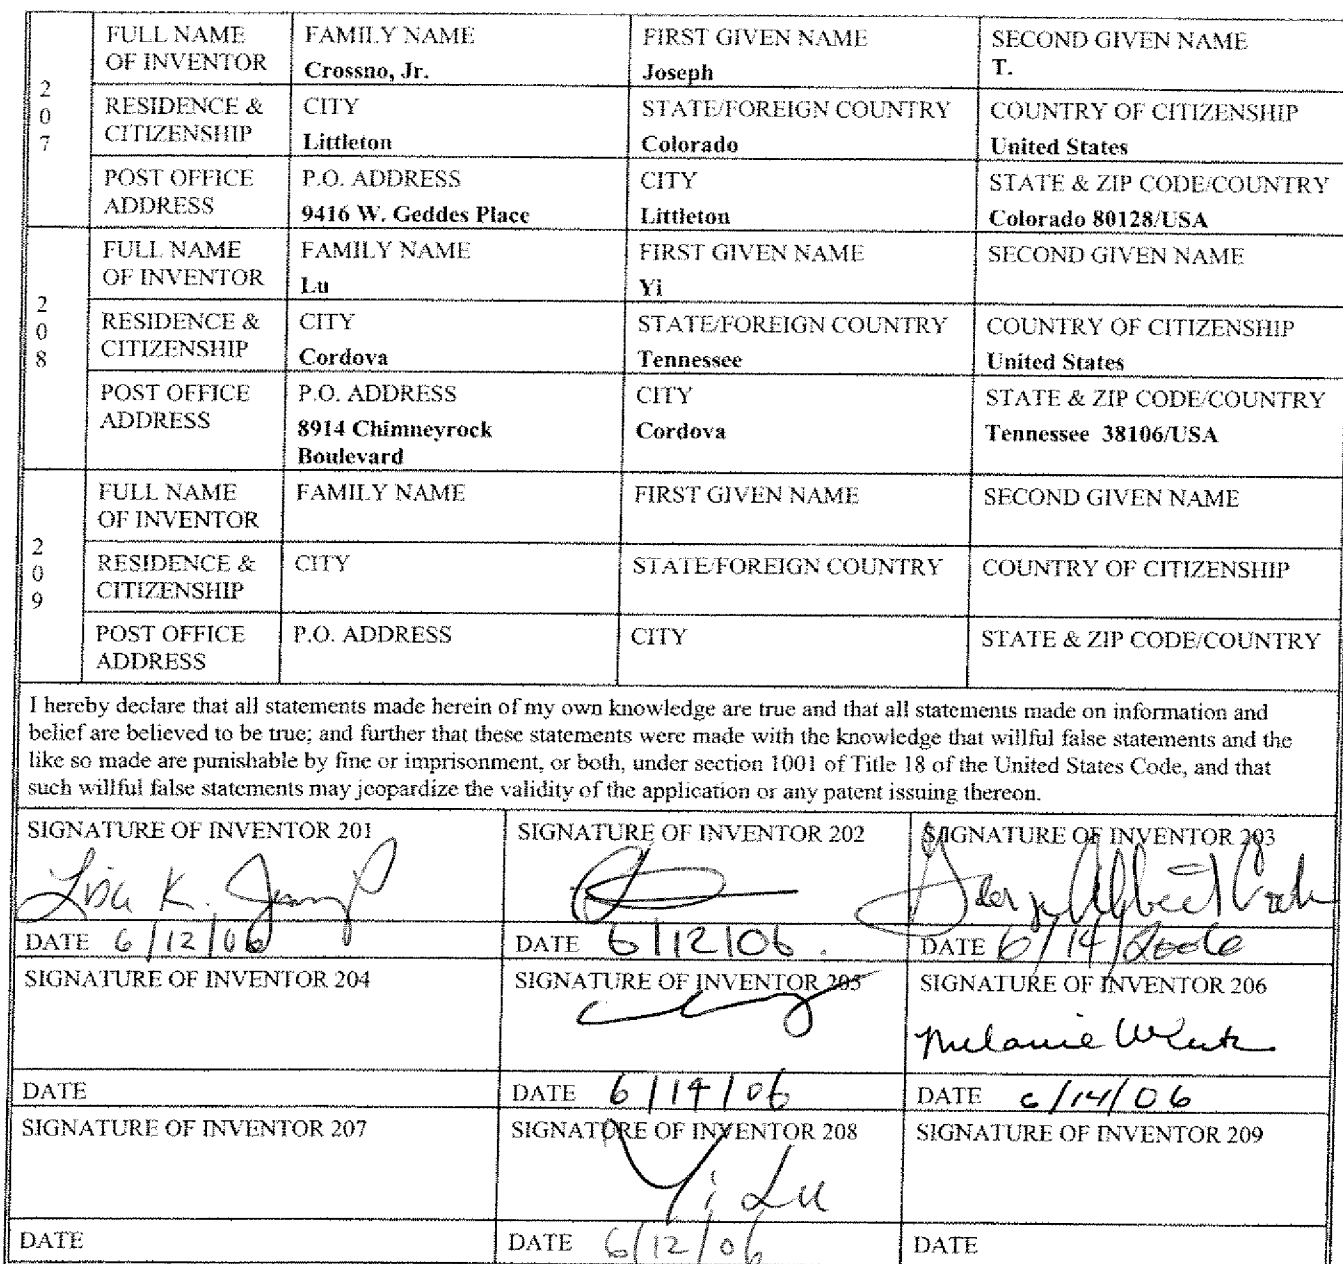 FULL NAME OF INVENTOR
FAMILY NAME
Crossno, Jr.
FIRST GIVEN NAME
Joseph
SECOND GIVEN NAME
T.
207
RESIDENCE & CITIZENSHIP
CITY
Littleton
STATE/FOREIGN COUNTRY
Colorado
COUNTRY OF CITIZENSHIP
United States
POST OFFICE ADDRESS
P.O. ADDRESS
9416 W. Geddes Place
CITY
Littleton
STATE & ZIP CODE/COUNTRY
Colorado 80128/USA
FULL NAME OF INVENTOR
FAMILY NAME
Lu
FIRST GIVEN NAME
Yi
SECOND GIVEN NAME
208
RESIDENCE & CITIZENSHIP
CITY
Cordova
STATE/FOREIGN COUNTRY
Tennessee
COUNTRY OF CITIZENSHIP
United States
POST OFFICE ADDRESS
P.O. ADDRESS
8914 Chimneyrock
Boulevard
CITY
Cordova
STATE & ZIP CODE/COUNTRY
Tennessee 38106/USA
FULL NAME OF INVENTOR
FAMILY NAME
FIRST GIVEN NAME
SECOND GIVEN NAME
209
RESIDENCE & CITIZENSHIP
CITY
STATE/FOREIGN COUNTRY
COUNTRY OF CITIZENSHIP
POST OFFICE ADDRESS
P.O. ADDRESS
CITY
STATE & ZIP CODE/COUNTRY
I hereby declare that all statements made herein of my own knowledge are true and that all statements made on information and
belief are believed to be true; and further that these statements were made with the knowledge that willful false statements and the
like so made are punishable by fine or imprisonment, or both, under section 1001 of Title 18 of the United States Code, and that
such willful false statements may jeopardize the validity of the application or any patent issuing thereon.
SIGNATURE OF INVENTOR 201
Lisa K.
DATE 6/12/06
SIGNATURE OF INVENTOR 202
DATE 6/12/06.
SIGNATURE OF INVENTOR 203
George Albert Cook
DATE 6/14/2006
SIGNATURE OF INVENTOR 204
DATE
SIGNATURE OF INVENTOR 205
DATE 6/14/06
SIGNATURE OF INVENTOR 206
Melanie
DATE 6/14/06
SIGNATURE OF INVENTOR 207
DATE
SIGNATURE OF INVENTOR 208
Yi Lu
DATE 6/12/06
SIGNATURE OF INVENTOR 209
DATE